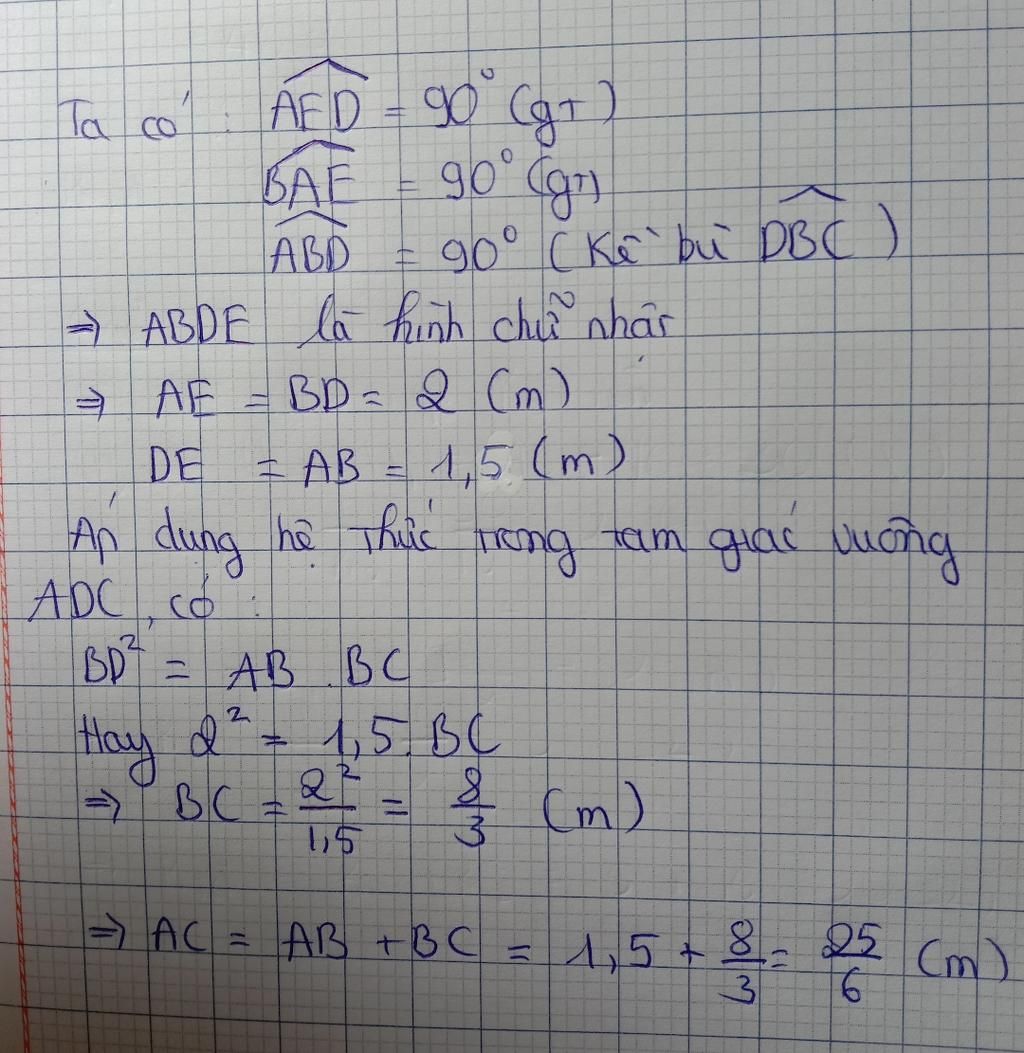 Ta có : \widehat{AED} = 90° (gT)
\widehat{BAE} = 90° (gT)
\widehat{ABD} = 90° (Kề bù \widehat{DBC})
⇒ ABDE là hình chữ nhật
⇒ AE = BD = 2 (m)
DE = AB = 1,5 (m)
Áp dụng hệ thức trong tam giác vuông
ADC, có :
BD² = AB . BC
Hay 2² = 1,5. BC
⇒ BC = 2²/1,5 = 8/3 (m)
⇒ AC = AB + BC = 1,5 + 8/3 = 25/6 (m)